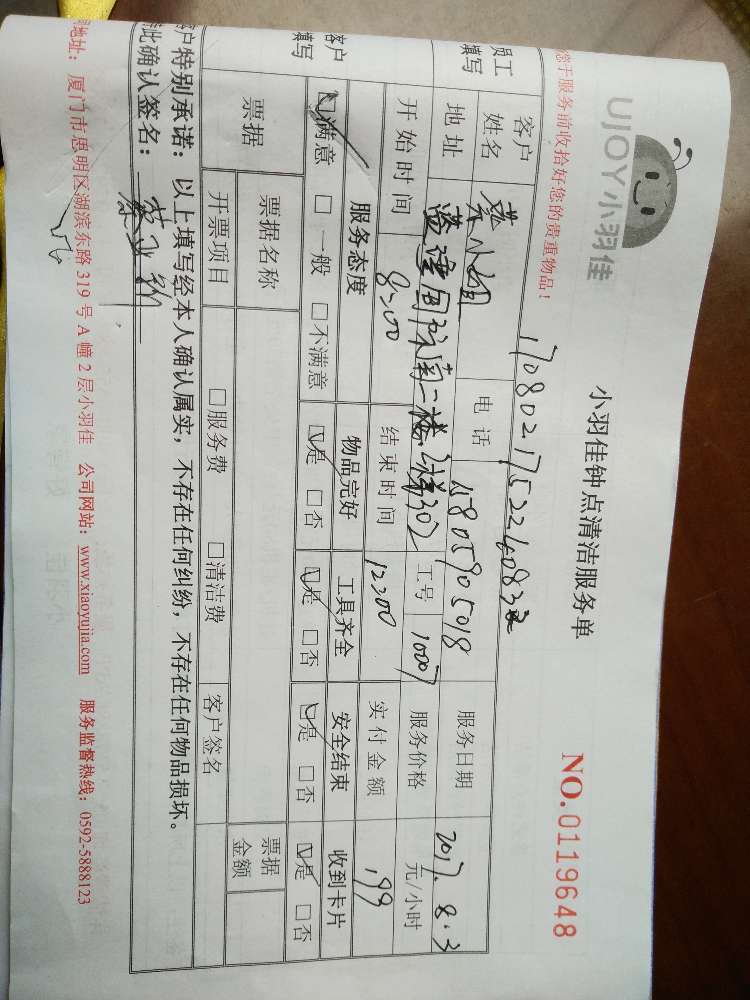 UJOY小羽佳
小羽佳钟点清洁服务单
NO.0119648
您于服务前收拾好您的贵重物品!
员工填写 客户姓名 蔡小姐 电话 15805905018 服务日期 2017.8.3
地址 工号 1007 服务价格 元/小时
开始时间 8:00 结束时间 12:00 实付金额 199
客户填写 服务态度 物品完好 工具齐全 安全结束 收到卡片
☑满意 □一般 □不满意 ☑是 □否 ☑是 □否 ☑是 □否 ☑是 □否
票据 票据名称 票据金额
开票项目 □服务费 □清洁费 客户签名
客户特别承诺:以上填写经本人确认属实,不存在任何纠纷,不存在任何物品损坏。
此确认签名:
地址:厦门市思明区湖滨东路319号A幢2层小羽佳 公司网站:www.xiaoyujia.com 服务监督热线:0592-5888123